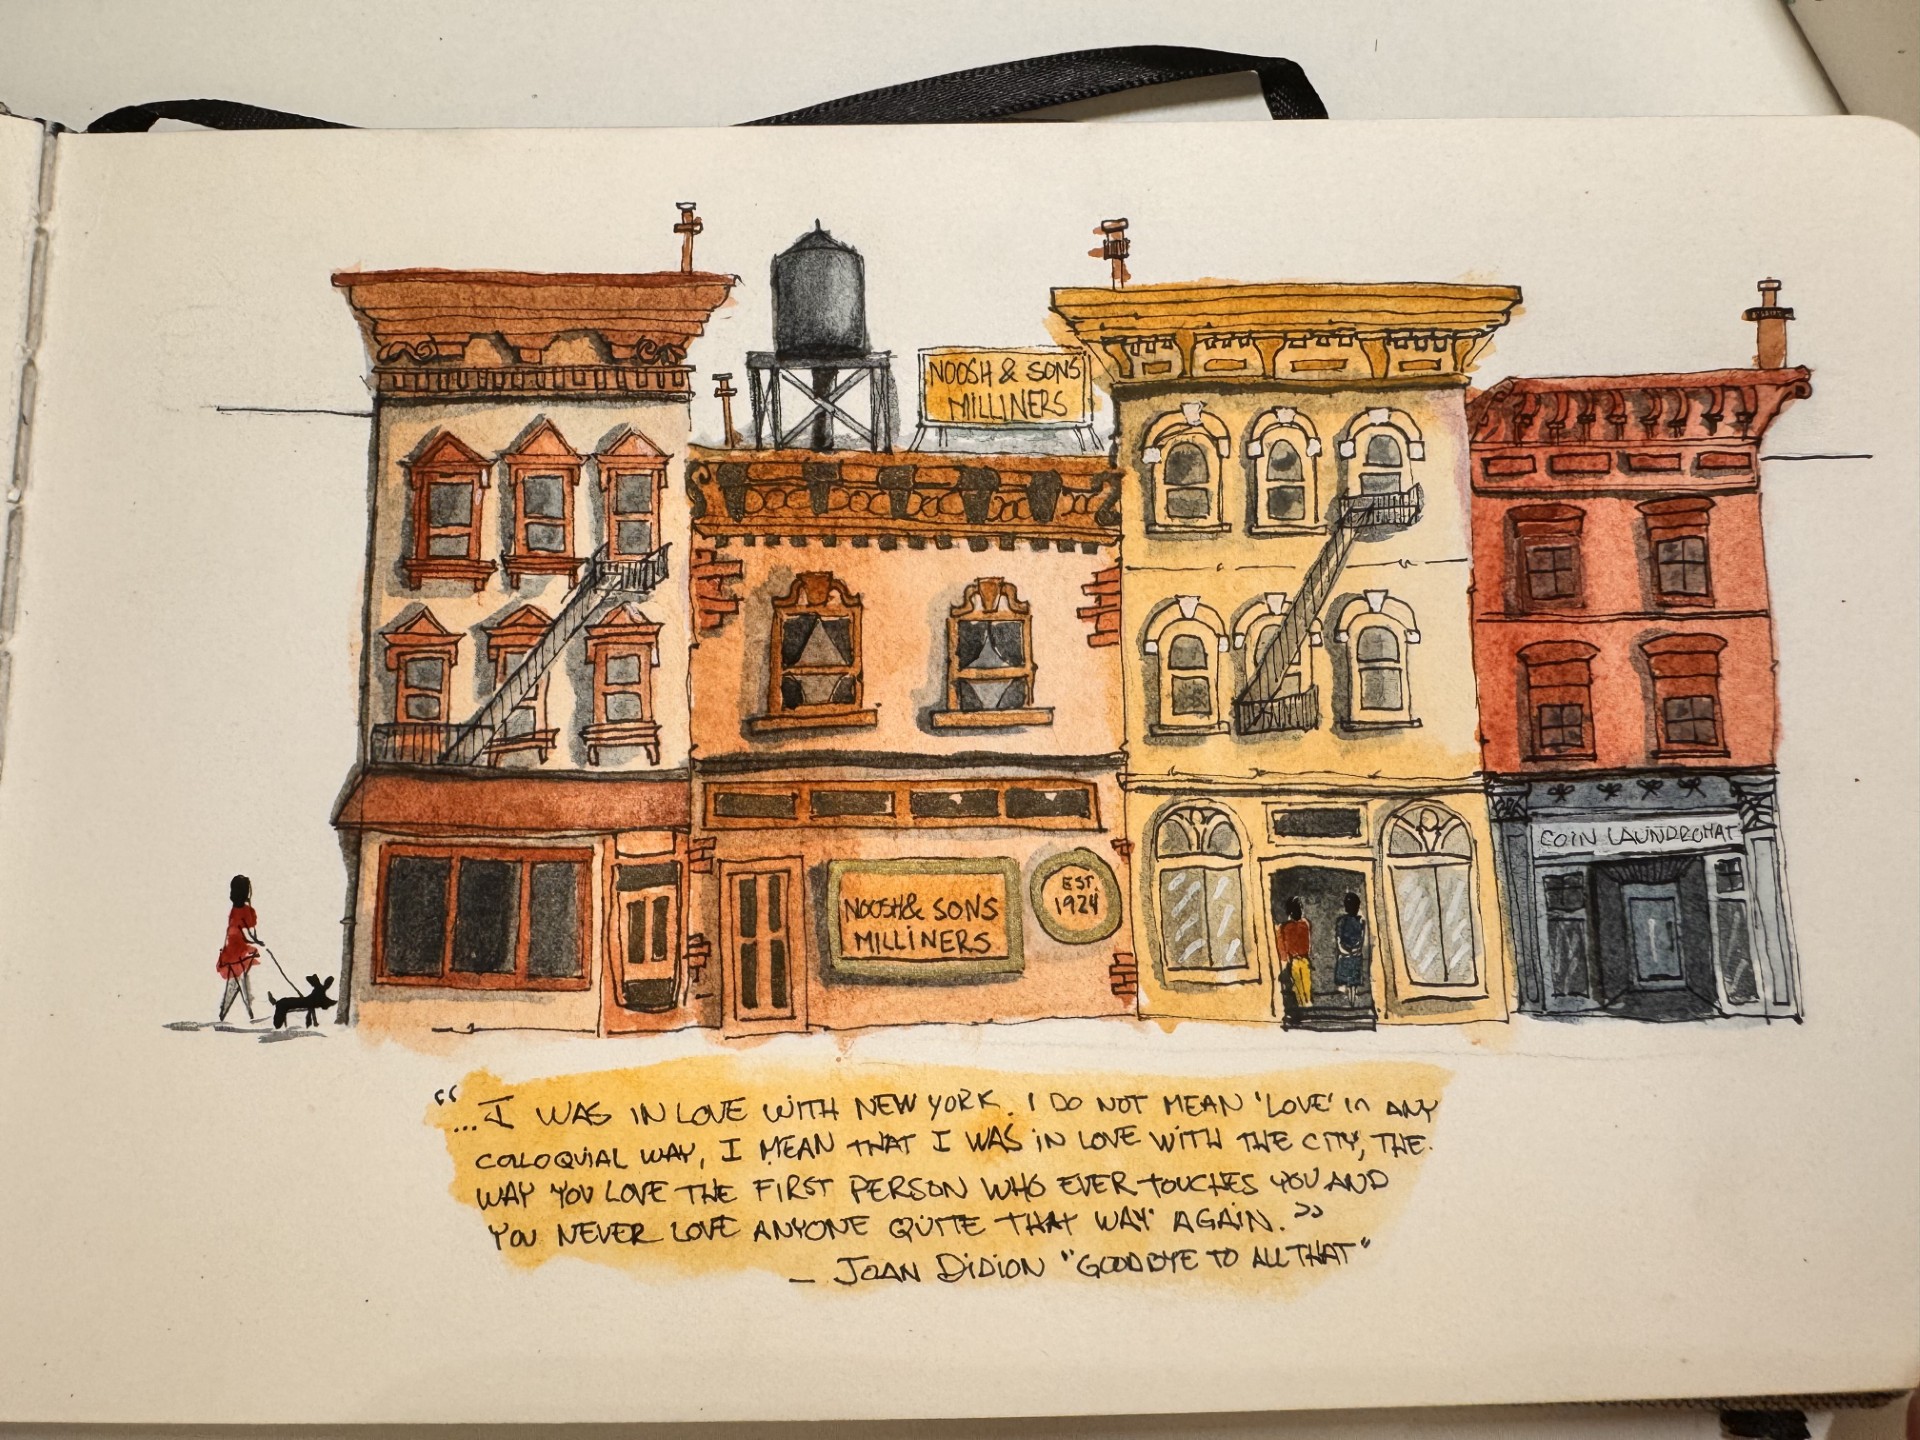 NOOSH & SONS
MILLINERS
NOOSH & SONS
MILLINERS
EST.
1924
COIN LAUNDROMAT
"...I WAS IN LOVE WITH NEW YORK. I DO NOT MEAN 'LOVE' in ANY
COLLOQUIAL WAY, I MEAN THAT I WAS IN LOVE WITH THE CITY, THE
WAY YOU LOVE THE FIRST PERSON WHO EVER TOUCHES YOU AND
YOU NEVER LOVE ANYONE QUITE THAT WAY AGAIN."
– JOAN DIDION "GOODBYE TO ALL THAT"